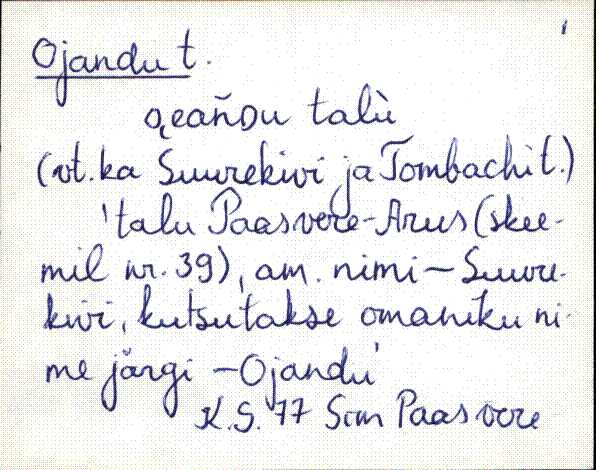 Ojandu t.
o̭eańDu talù
(vt. ka Suurekivi ja Tombachi t.)
'talu Paasvere-Arus (skee-
mil nr. 39), am. nimi – Suure-
kivi, kutsutakse omaniku ni-
me järgi – Ojandu'
K.S. 77 Sim Paasvere